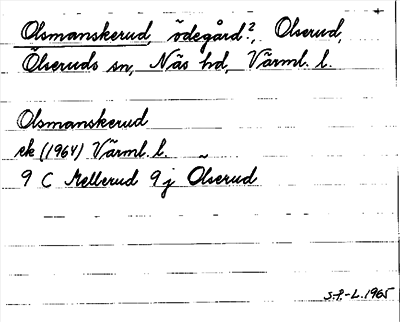 Olsmanskerud, ödegård?, Olserud,
Ölseruds sn, Näs hd, Värml. l.
Olsmanskerud
ek (1964) Värml. l.
9 C Mellerud 9 j Ölserud
S.P.-L. 1965